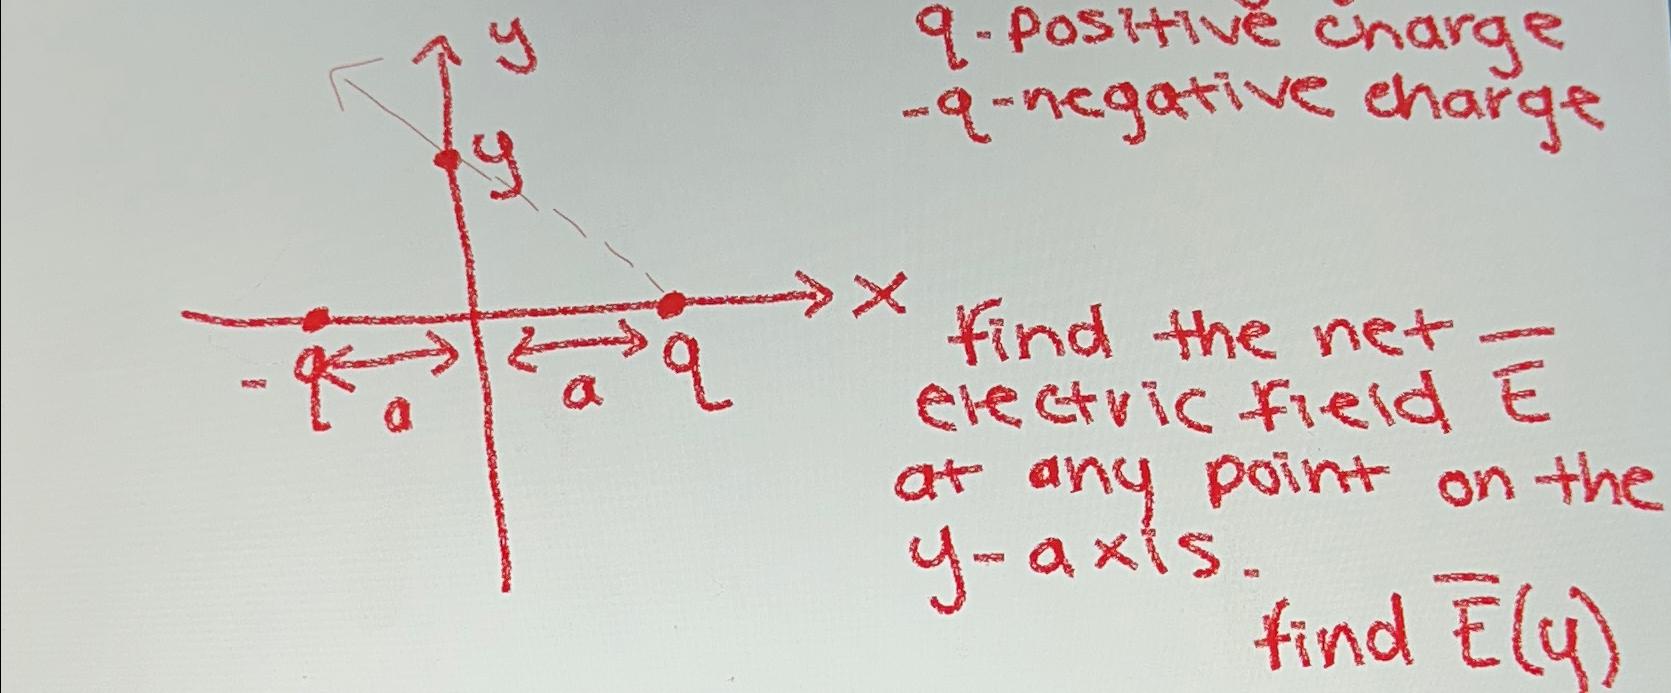 y
q - positive charge
- q - negative charge
y
x
- q
a
a
q
find the net
electric field E̅
at any point on the
y-axis.
find E̅(y)